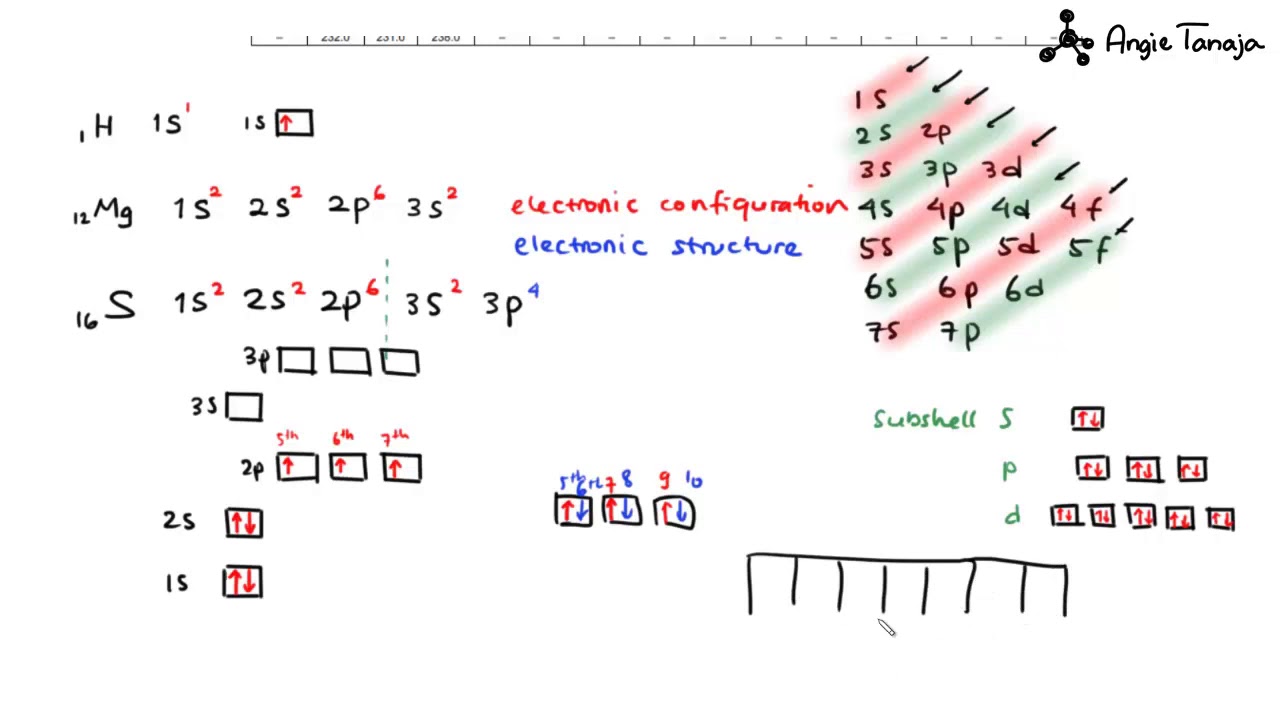 232.0 231.0 238.0
Angie Tanaja
₁H 1s¹ 1s ↑
₁₂Mg 1s² 2s² 2p⁶ 3s²
electronic configuration
electronic structure
₁₆S 1s² 2s² 2p⁶ 3s² 3p⁴
3p
3s
5th 6th 7th
2p ↑ ↑ ↑
2s ↑↓
1s ↑↓
5th 6th 7 8 9 10
↑↓ ↑↓ ↑↓
1s
2s 2p
3s 3p 3d
4s 4p 4d 4f
5s 5p 5d 5f
6s 6p 6d
7s 7p
subshell s ↑↓
p ↑↓ ↑↓ ↑↓
d ↑↓ ↑↓ ↑↓ ↑↓ ↑↓